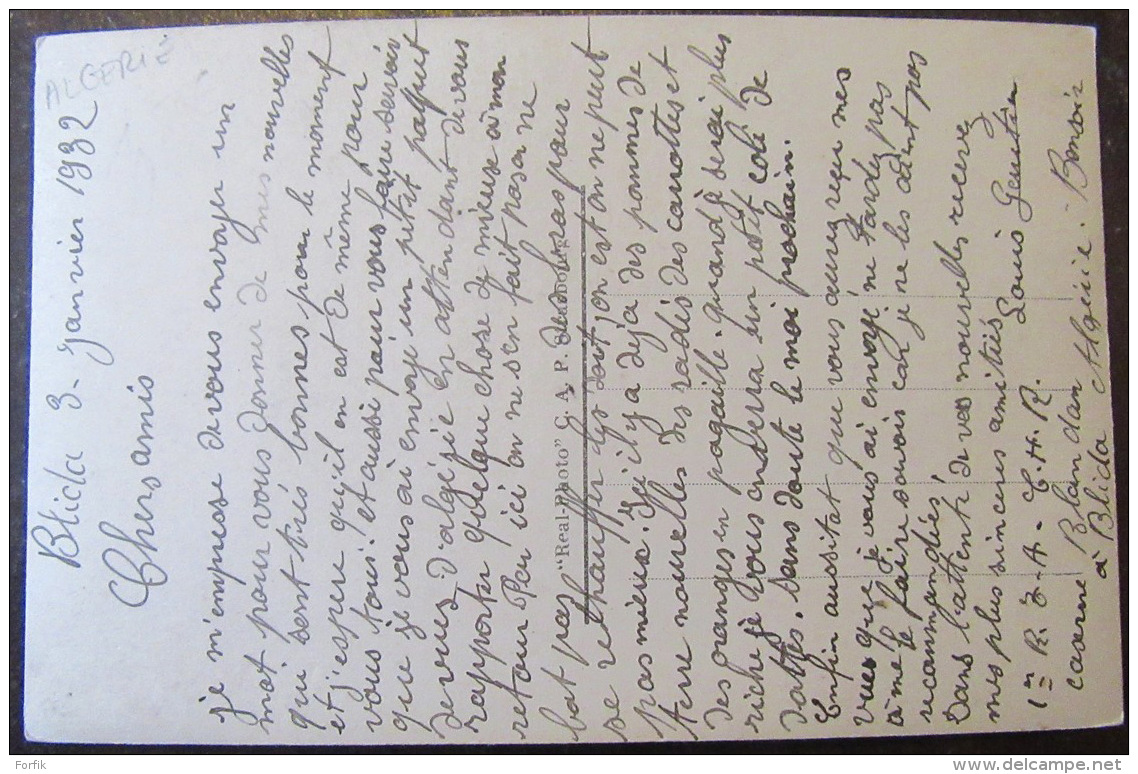 ALGERIE
Blida 3 - Janvier 1932
Chers amis
je m'empresse de vous envoyer un
mot pour vous donner de mes nouvelles
qui sont très bonnes pour le moment
et j'espere qu'il en est de même pour
vous tous. et aussi pour vous faire savoir
que je vous ai envoyé un petit paquet
de vues d'algerie en attendant de vous
rapporter quelque chose de mieux à mon
retour Pour ici on ne s'en fait pas on ne
bat pas
se rechauffer les
pas mieux. Ici il y a deja des pommes de
terre nouvelles des radis des carottes et
des oranges en pagaille. quand je serai plus
riche je vous enverra un petit coli de
dattes. sans doute le moi prochain.
Enfin aussitot que vous aurez reçu mes
vues que je vous ai envoyé ne tardez pas
à me le faire savoir car je ne les ai pas
recommandés,
Dans l'attente de vos nouvelles recevez
mes plus sinceres amitiés
Louis
1er R. 3. A. - C. H. R.
caserne Blandan
à Blida Algérie. -
"Real-Photo" C. A. P.
Forfik
delcampe.net